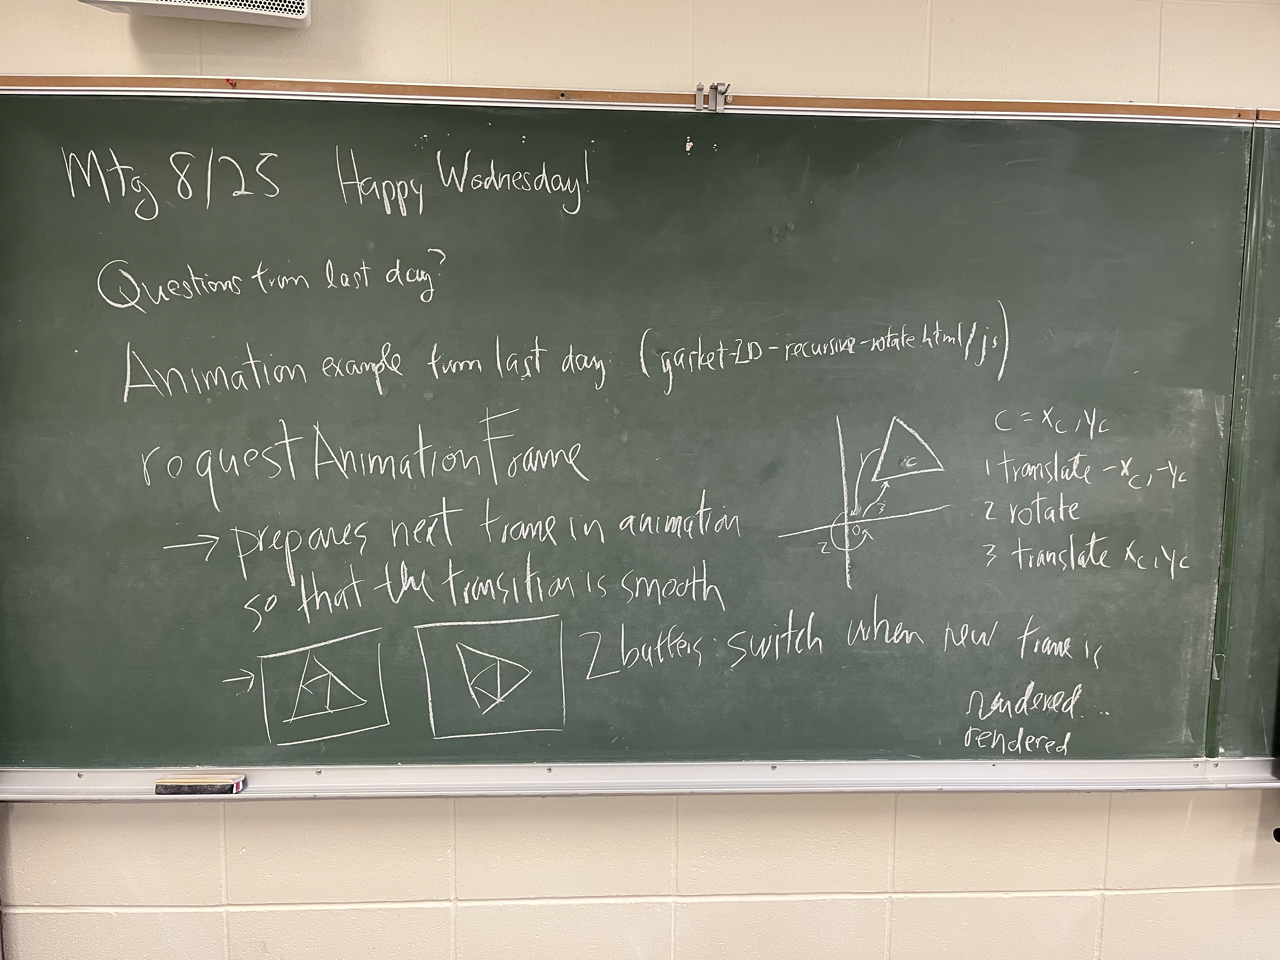 Mtg 8/25 Happy Wednesday!
Questions from last day?
Animation example from last day (gasket-2D-recursive-rotate html/js)
requestAnimationFrame
→ prepares next frame in animation
so that the transition is smooth
→ 2 buffers: switch when new frame is
rendered...
rendered
C = xc, yc
1 translate -xc, -yc
2 rotate
3 translate xc, yc
C
1
3
0
2